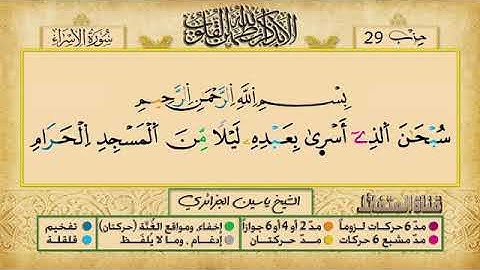 حزب 29
ألا بذكر الله تطمئن القلوب
سورة الإسراء
بِسْمِ اِ۬للَّهِ اِ۬لرَّحْمَٰنِ اِ۬لرَّحِيمِ
سُبْحَٰنَ اَ۬لذِےٓ أَسْر۪يٰ بِعَبْدِهِۦ لَيْلاٗ مِّنَ اَ۬لْمَسْجِدِ اِ۬لْحَرَامِ
الشيخ ياسين الجزائري
مدّ 6 حركات لزوماً مدّ 2 أو 4 أو 6 جوازاً إخفاء، ومواقع الغُنَّة (حركتان) تفخيم
مدّ مشبع 6 حركات مدّ حركتان إدغام، وما لا يُلفَظ قلقلة